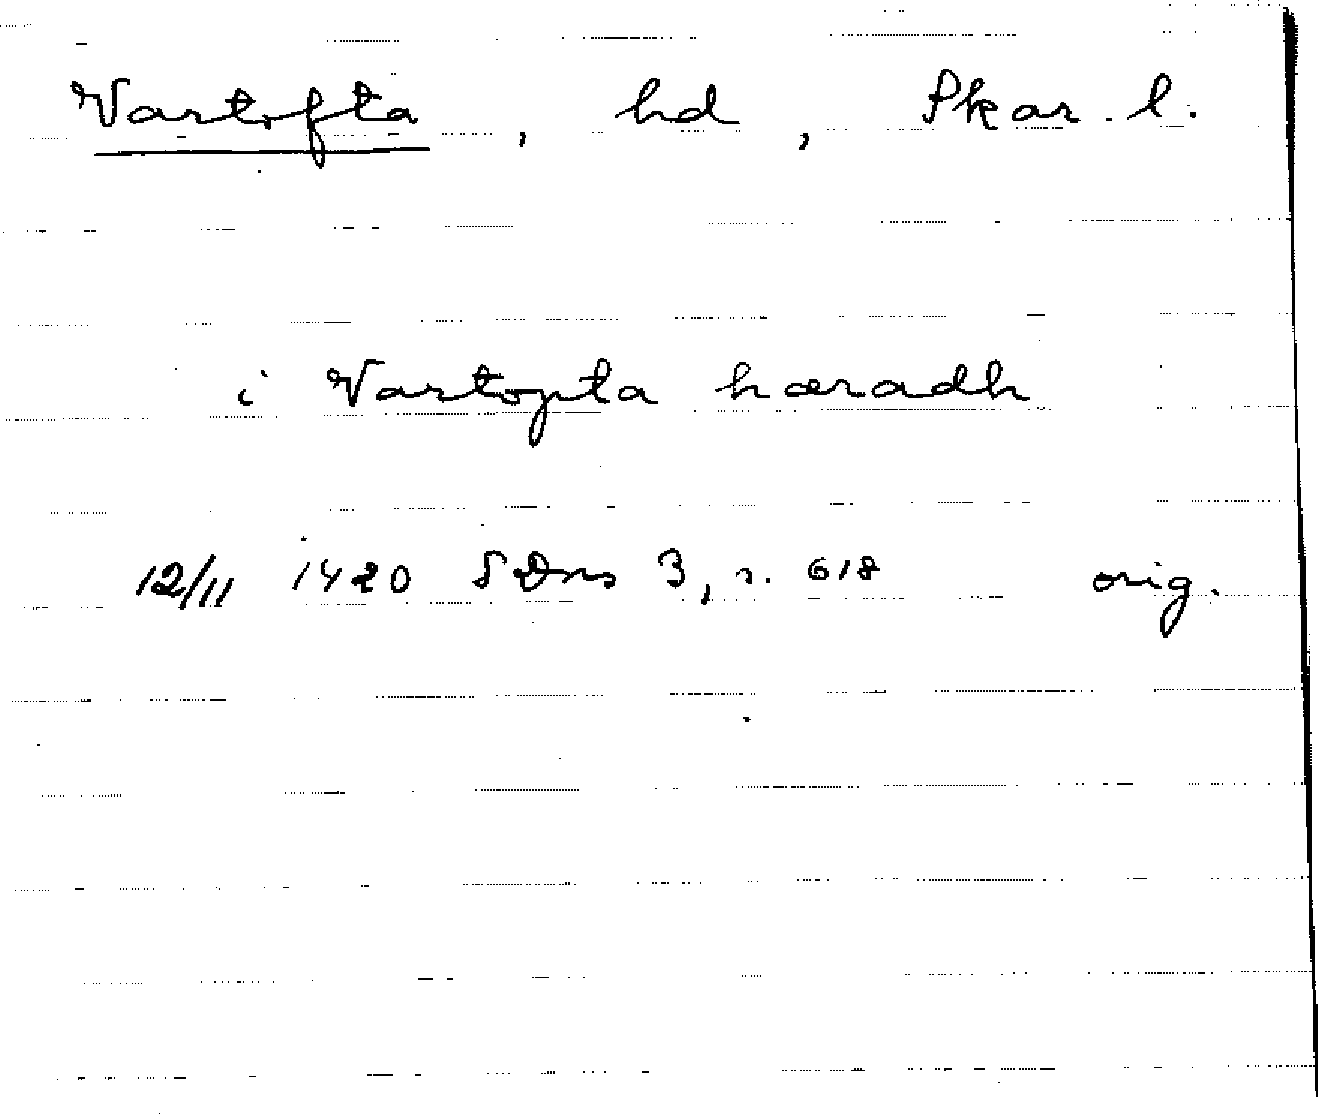 Vartofta, hd, Skar. l.
i Vartopta hæradh
12/11 1420 SDns 3, s. 618 orig.